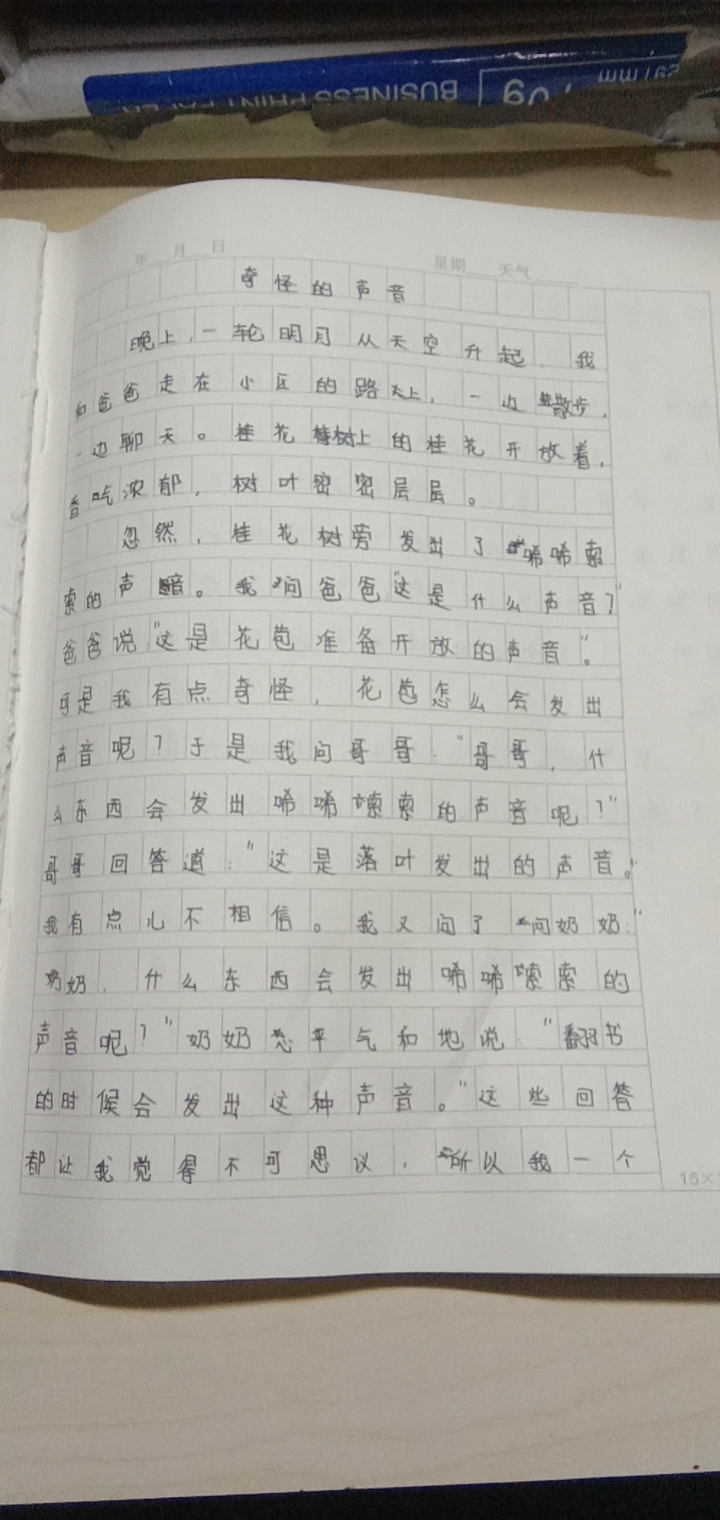 297mm
70g
BUSINESS PRINT PAPER
年 月 日 星期 天气
奇怪的声音
晚上,一轮明月从天空升起,我
和爸爸走在小区的路上,一边散步,
一边聊天。桂花树上的桂花开放着,
香吃浓郁,树叶密密层层。
忽然,桂花树旁发出了唏唏索
索的声暗。我问爸爸“这是什么声音?”
爸爸说:“这是花苞准备开放的声音”。
可是我有点奇怪,花苞怎么会发出
声音呢?于是我问哥哥:“哥哥,什
么东西会发出唏唏索索的声音呢?”
哥哥回答道:“这是落叶发出的声音。”
我有点心不相信。我又问了问奶奶:“
奶奶,什么东西会发出唏唏索索的
声音呢?”奶奶平气和地说:“翻书
的时候会发出这种声音。”这些回答
都让我觉得不可思议,所以我一个
15×